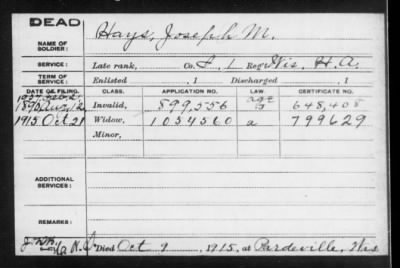 DEAD
NAME OF SOLDIER: Hays, Joseph M.
SERVICE: Late rank, Co. L. 1 Reg't Wis. H.A.
TERM OF SERVICE: Enlisted , 1 Discharged , 1
DATE OF FILING. CLASS. APPLICATION NO. LAW CERTIFICATE NO.
1890 Aug 12 Invalid, 899,556 648,408
1915 Oct 21 Widow, 1054560 a 799629
Minor,
ADDITIONAL SERVICES:
REMARKS:
Died Oct 9, 1915, at Pardeville, Wis